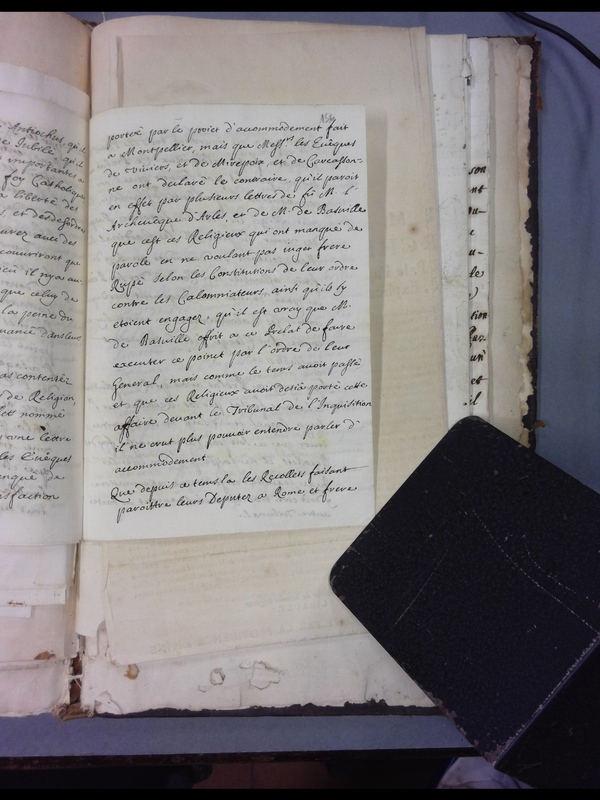 Antiochus, qu'il
Jubilé, qu'il
importantes a
foy Catholique
a liberté des
, et des desordres
avec des
couvriront que
il n'y a au-
que celuy de
la peine du
dans leur
contenter
de Religion,
nommé
une lettre
les Evêques
que de
satisfaction
portoié par le proiet d'acommodement fait
a Montpellier, mais que Mess.rs les Evêques
de viviers, et de Mirepoix, et de Carcasson-
ne ont declaré le contraire, qu'il paroit
en effet par plusieurs lettres de fû M. l'
Archevêque d'Arles, et de M. de Basville
que cest ces Religieux qui ont manqué de
parole en ne voulant pas iuger frere
Rupé selon les Constitutions de leur ordre
contre les Calomniateurs, ainsi qu'ils sy
etoient engagez, qu'il est vray que M.
de Basville offrit a ce Prelat de faire
executer ce poinct par l'ordre de leur
General, mais comme le tems avoit passé
et que ces Religieux avoit desia porté cette
affaire devant le Tribunal de l'Inquisition
il ne crut plus pouvoir entendre parler d'
acommodement
Que depuis ce tems la les Recollets faisant
paroittre leurs Deputez a Rome et frere
son
nt
nu-
e
u-
le
)
tion
Pur.
un
et
il